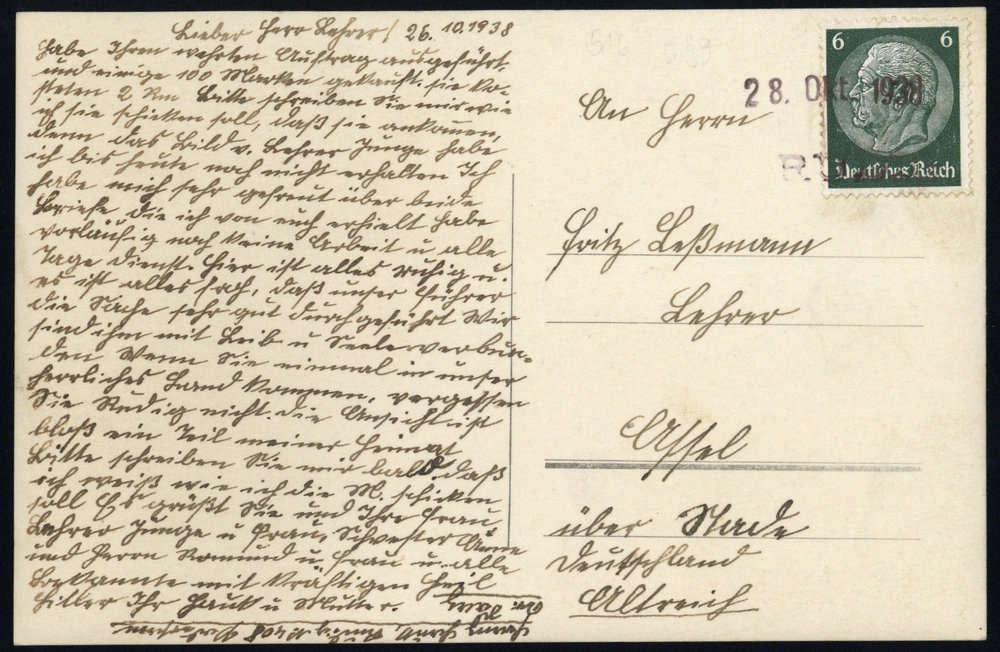 Lieber Herr Lehrer! 26.10.1938
Habe Ihren werten Auftrag ausgeführt,
und einige 100 Marken gekauft. sie ko-
steten 2 Rm Bitte schreiben Sie mir wie
ich sie schicken soll, daß sie ankommen,
denn das Bild v. Lehrer Junge habe
ich bis heute noch nicht erhalten Ich
habe mich sehr gefreut über beide
Briefe die ich von euch erhielt habe
vorläufig noch keine Arbeit u alle
Tage Dienst. Hier ist alles ruhig u.
es ist alles froh, daß unser Führer
die Sache sehr gut durchgeführt Wir
sind ihm mit Leib u Seele verbun-
den Wenn Sie einmal in unser
herrliches Land kommen, vergessen
Sie Rudig nicht. die Ansicht ist
bloß ein Teil meiner Heimat
Bitte schreiben Sie mir bald daß
ich weiß wie ich die M. schicken
soll Es grüßt Sie und Ihre Frau
Lehrer Junge u Frau, Schwester Anne
und Herrn Romund u Frau u. alle
Bekannte mit kräftigen Heil
Hitler Ihr u Mutter.
28. Okt. 1938
6 6
Deutsches Reich
An Herrn
Fritz Leßmann
Lehrer
Assel
über Stade
Deutschland
Altreich